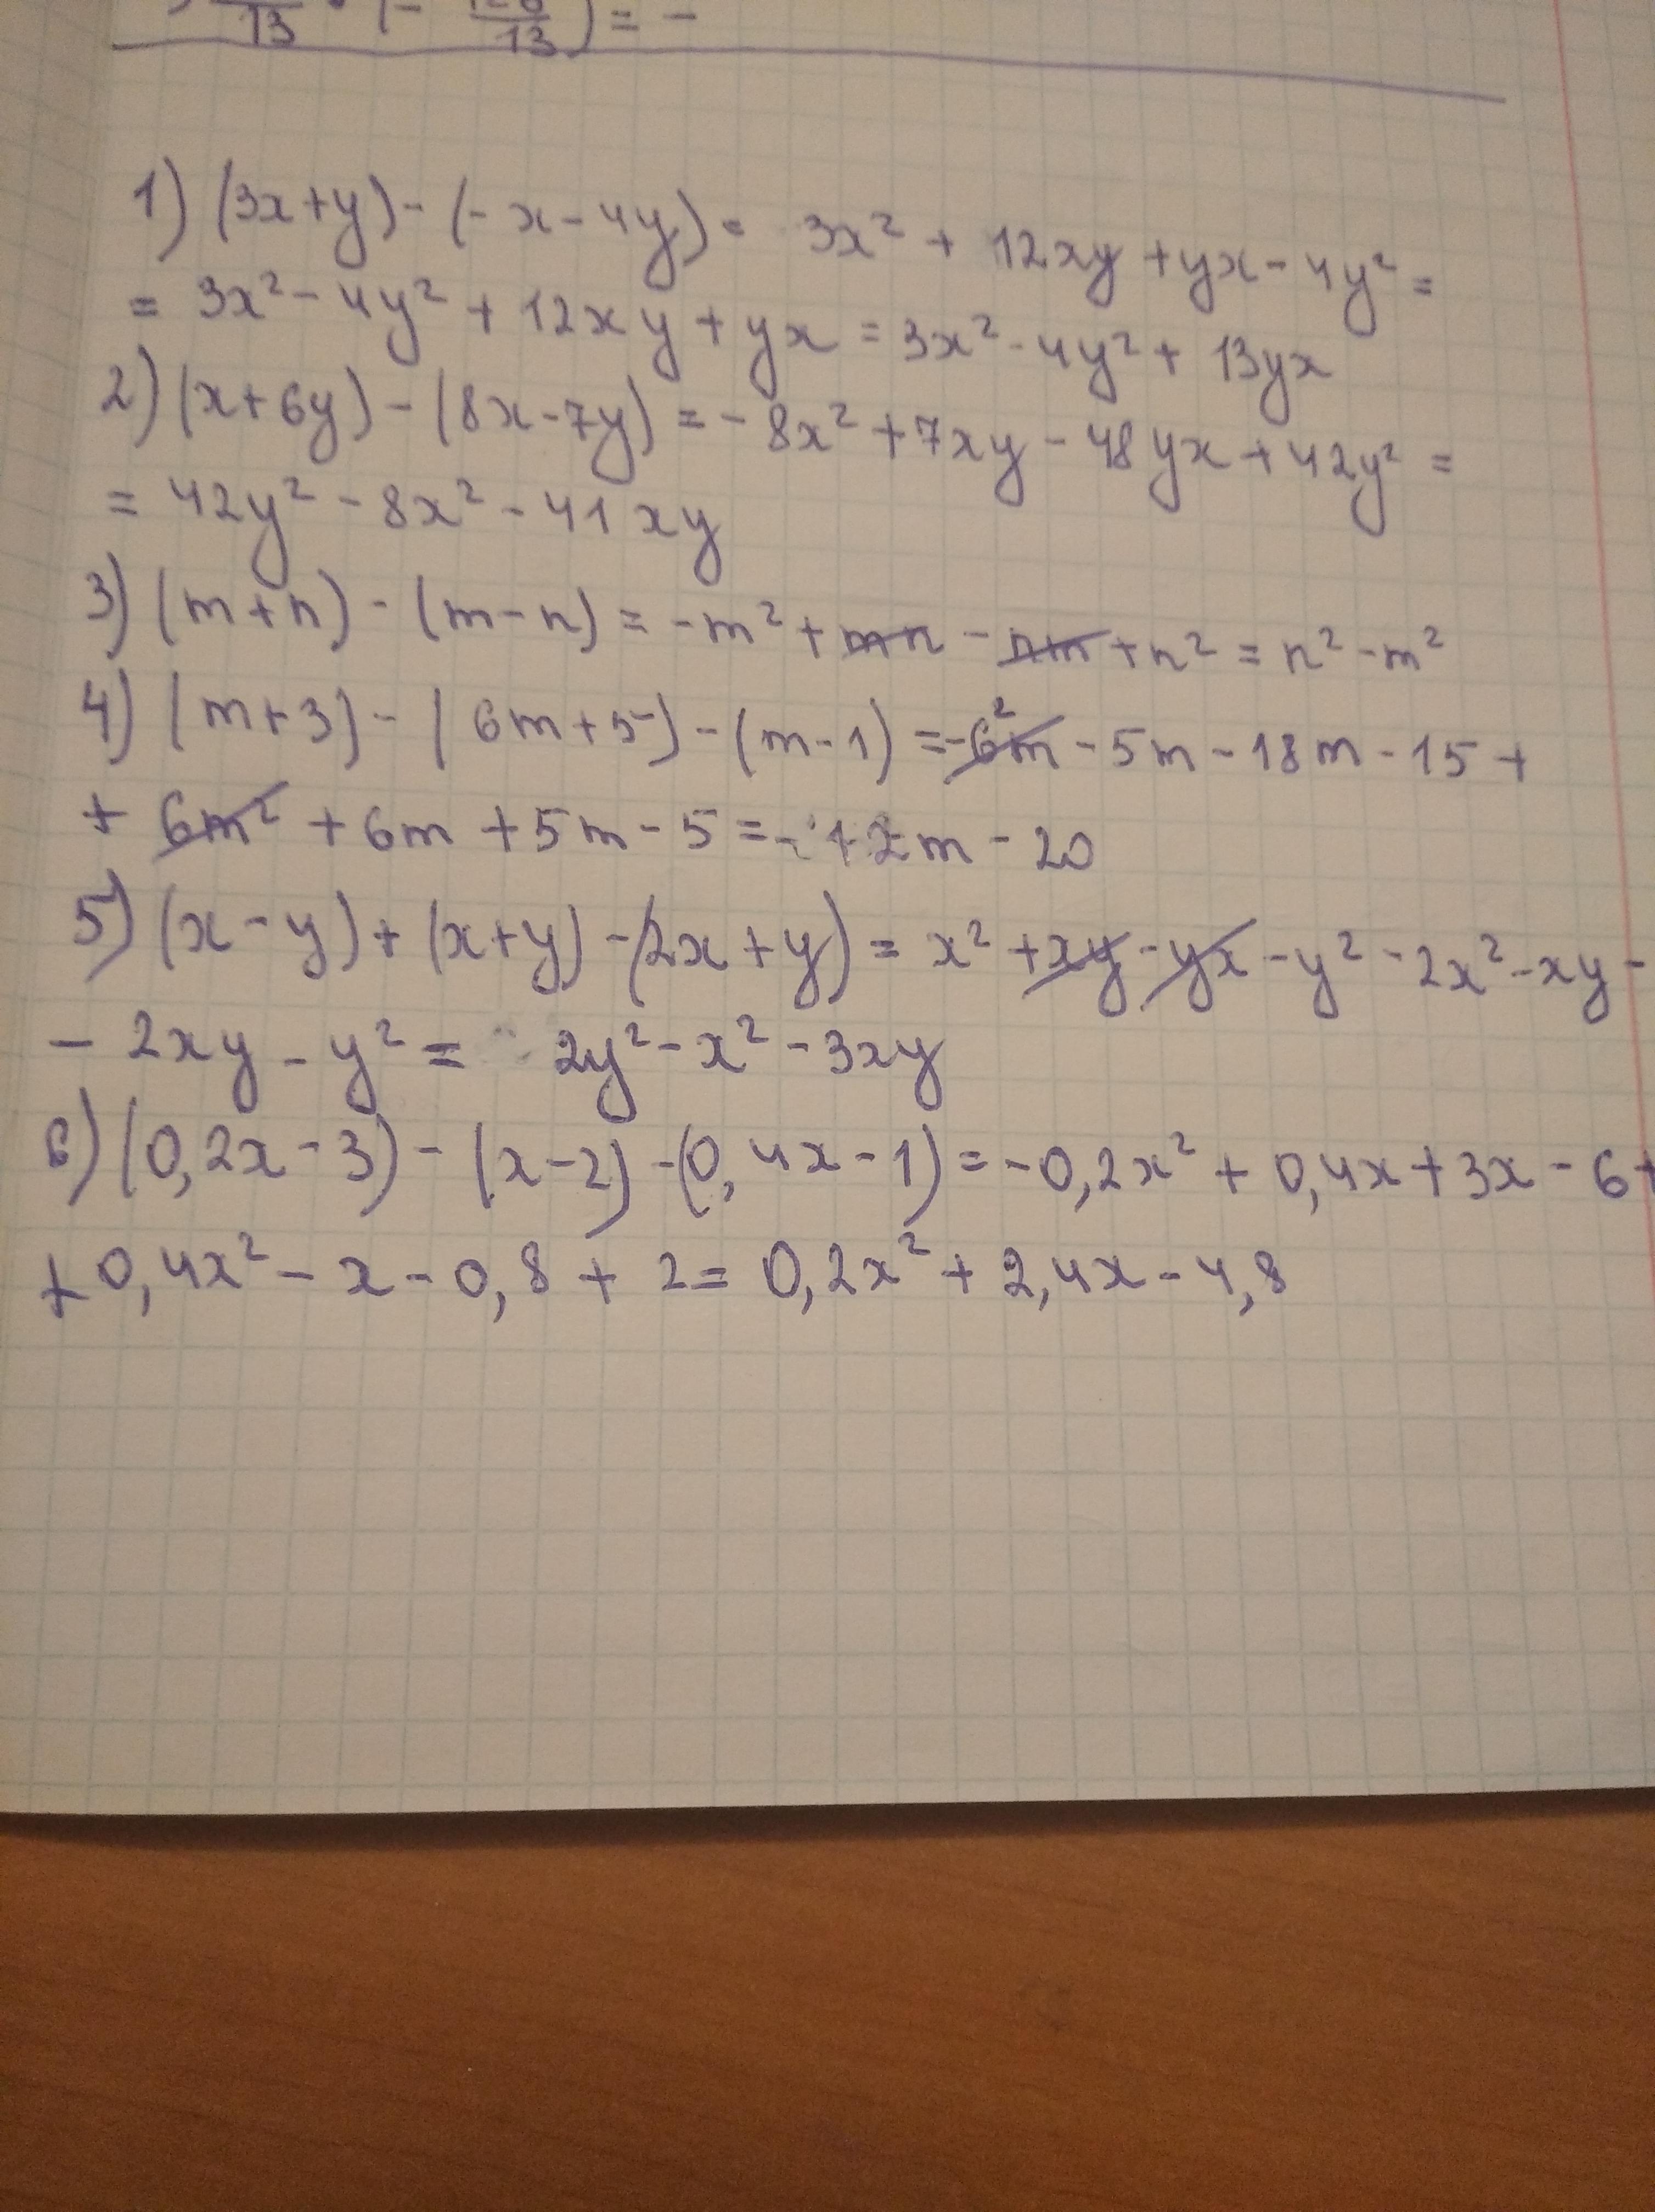 13 (- 13) = -
1) (3x+y) - (-x-4y) = 3x² + 12xy + yx - 4y² =
= 3x² - 4y² + 12xy + yx = 3x² - 4y² + 13yx
2) (x+6y) - (8x-7y) = -8x² + 7xy - 48yx + 42y² =
= 42y² - 8x² - 41xy
3) (m+n) - (m-n) = -m² + mn - nm + n² = n² - m²
4) (m+3) - (6m+5) - (m-1) = -6m² - 5m - 18m - 15 +
+ 6m² + 6m + 5m - 5 = -12m - 20
5) (x-y) + (x+y) - (2x+y) = x² + xy - yx - y² - 2x² - xy -
- 2xy - y² = 2y² - x² - 3xy
6) (0,2x-3) - (x-2) - (0,4x-1) = -0,2x² + 0,4x + 3x - 6 +
+ 0,4x² - x - 0,8 + 2 = 0,2x² + 2,4x - 4,8